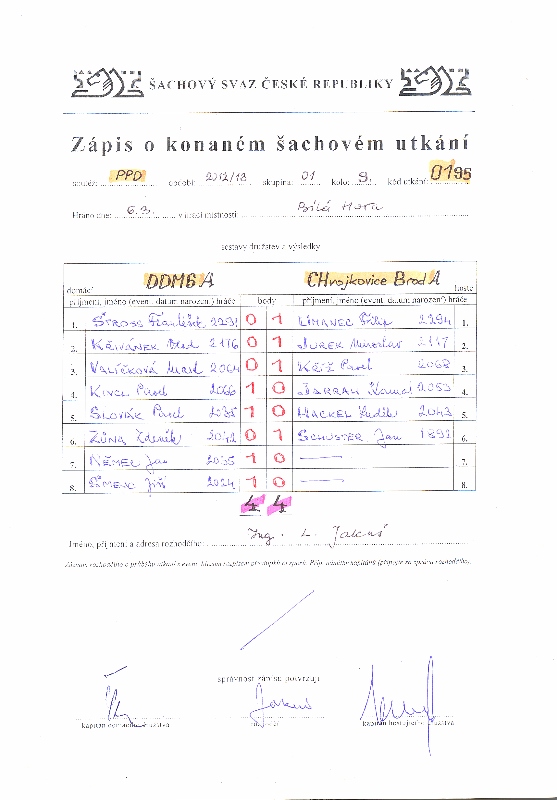 ŠACHOVÝ SVAZ ČESKÉ REPUBLIKY
Zápis o konaném šachovém utkání
soutěž: PPD období: 2012/13 skupina: 01 kolo: 9. kód utkání: 0195
Hráno dne: 6.3. v hrací místnosti: Bílá Hora
sestavy družstev a výsledky
domácí DDM6 A CHvojkovice Brod A hosté
příjmení, jméno (event. datum narození) hráče body příjmení, jméno (event. datum narození) hráče
1. ŠTROSS František 2231 0 1 LÍMANEC Filip 2294 1.
2. KŘIVÁNEK 2176 0 1 JUREK Miroslav 2117 2.
3. VALÍČKOVÁ 2064 0 1 KŘÍŽ Pavel 2068 3.
4. KINCL Pavel 2066 1 0 2053 4.
5. SLOVÁK Pavel 1 0 HACKEL Luděk 2043 5.
6. ZŮNA Zdeněk 2042 0 1 SCHUSTER Jan 6.
7. NĚMEC Jan 2035 1 0 — 7.
8. Jiří 2024 1 0 — 8.
4 4
Jméno, příjmení a adresa rozhodčího: Ing. L. Jakeš
správnost zápisu potvrzují
kapitán domácího družstva rozhodčí kapitán hostujícího družstva